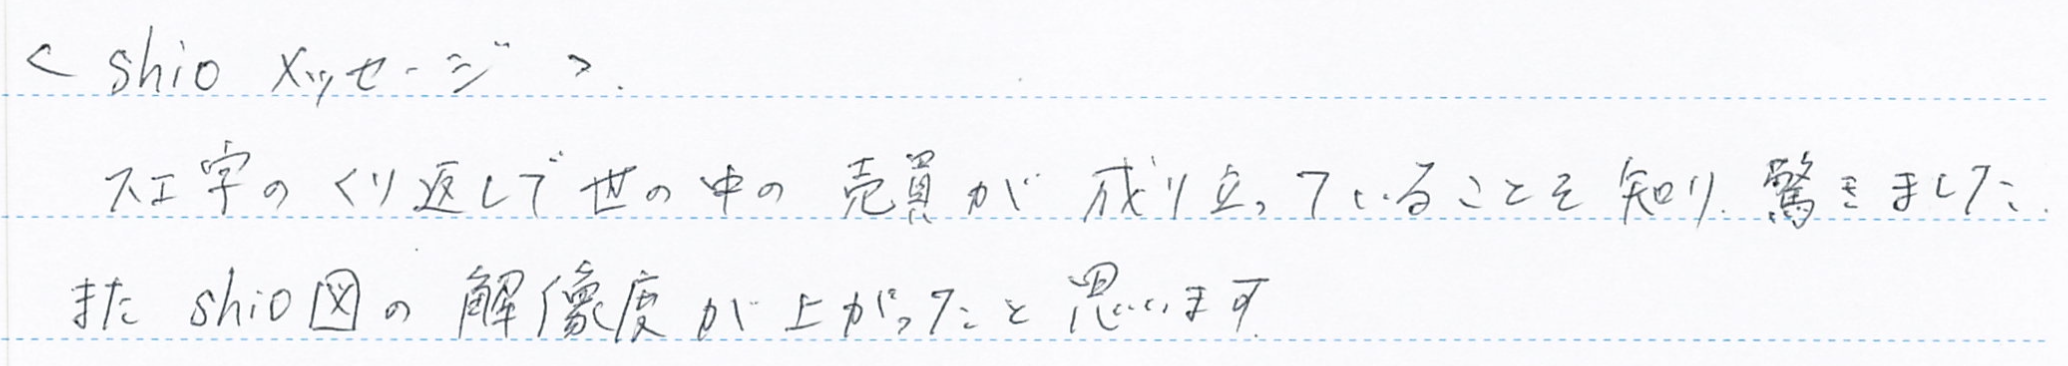 < shio メッセージ >.
スエ字のくり返しで世の中の売買が成り立っていることを知り、驚きました.
また shio図の解像度が上がったと思います.